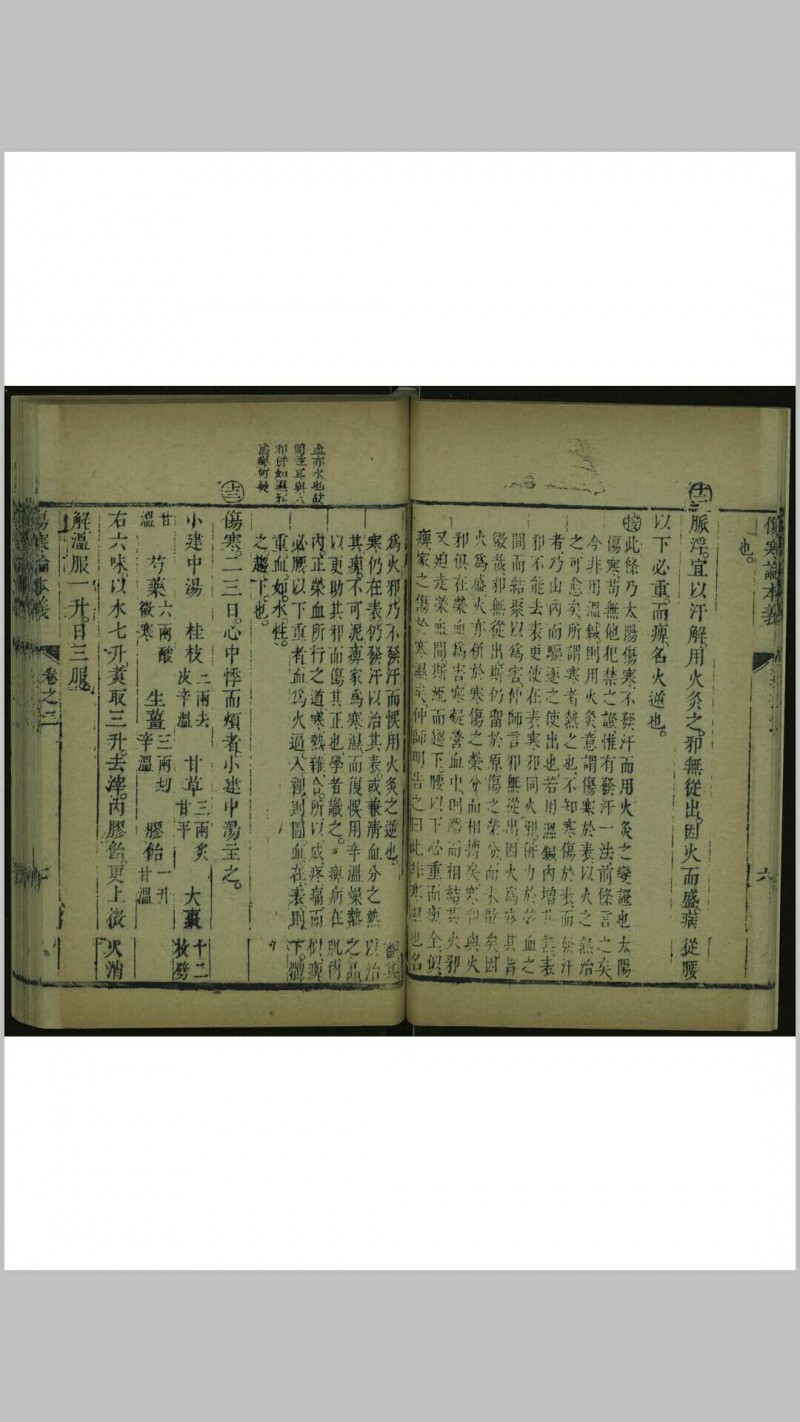 傷寒論本義
六
也。
脈浮。宜以汗解。用火灸之。邪無從出。因火而盛。病從腰
以下必重。而痺。名火逆也。
按此條乃太陽傷寒不發汗而用火灸之變證也太陽
傷寒苟無他犯禁之證惟有發汗一法前條言之矣
今非用溫鍼則用火灸意謂傷寒於表以火之熱治
之可愈矣所謂寒者熱之也不知寒傷於表而發汗
者乃由內而驅逐之使出也若用溫鍼內增其熱表
邪不能去表更使在表寒邪同火邪併力於榮血之
間而結聚以為害仲師言邪無從出因火為盛其旨
微哉邪無從出斯仍留於原傷之榮分而未散矣因
火為盛火亦併於寒傷之榮分而相摶矣寒邪與火
邪俱在榮血為害寒凝營血中則滯而相結其火邪
又迫走榮血間斯流而趨下腰以下必重而痺全似
痺家之傷於寒濕矣仲師明告之曰此非寒濕也名
為火邪乃不發汗而悞用火灸之逆也
寒仍在表仍發汗以治其表或兼清血分之熱以治
其痺不可泥痺家為寒濕而復悞用辛溫燥熱之品
以更助其邪而傷其正也學者識之。痺病在肌肉
內正榮血所行之道寒熱雜合所以成疼痛而
必腰以下重者血為火逼入裡則
重血如水性。
之趨下也。
血亦水也故
同
邪併如濕邪
為痺何疑
十三
傷寒。二三日。心中悸而煩者。小建中湯主之。
小建中湯 桂枝三兩去皮辛溫 甘草三兩炙甘平 大棗十二枚劈
甘溫 芍藥六兩酸微寒 生薑三兩切辛溫 膠飴一升甘溫
右六味。以水七升。煮取三升。去滓。內膠飴。更上微火消
解。溫服一升。日三服。
傷寒論本義 卷之二